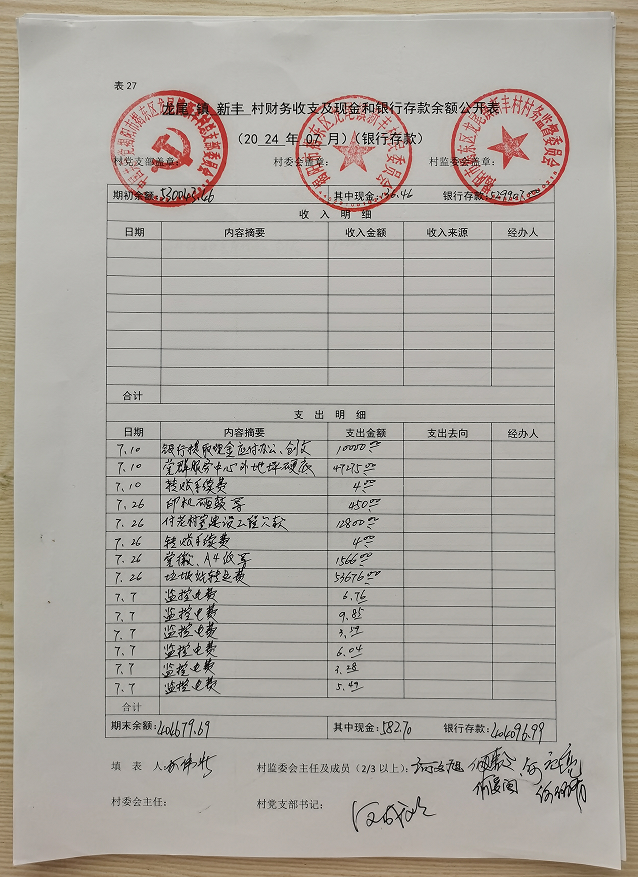 表 27
龙尾 镇 新丰 村财务收支及现金和银行存款余额公开表
(20 24 年 07 月)(银行存款)
村党支部盖章: 村委会盖章: 村监委会盖章:
期初余额: 530063.46 其中现金: 银行存款:
收 入 明 细
日期 内容摘要 收入金额 收入来源 经办人
合计
支 出 明 细
日期 内容摘要 支出金额 支出去向 经办人
7.10 银行提取现金应付办公、创文 10000.00
7.10 党群服务中心外地坪硬底 47275.00
7.10 转账手续费 4.00
7.26 印机硒鼓等 450.00
7.26 付老村室建设工程欠款 12800.00
7.26 转账手续费 4.00
7.26 党徽、A4纸等 1566.00
7.26 垃圾处转运费 53676.00
7.7 监控电费 6.76
7.7 监控电费 9.85
7.7 监控电费 3.59
7.7 监控电费 6.04
7.7 监控电费 3.28
7.7 监控电费 5.49
合计
期末余额: 404679.69 其中现金: 582.70 银行存款: 404096.99
填 表 人: 村监委会主任及成员 (2/3 以上):
村委会主任: 村党支部书记: